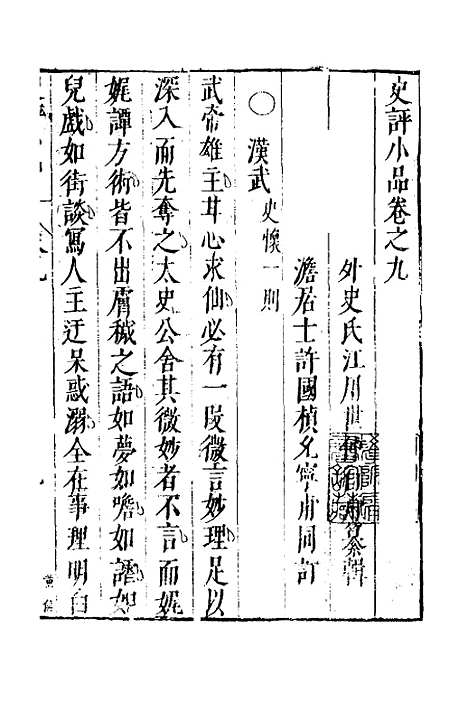 史評小品卷之九
外史氏江用世
輯
澹居士許國楨允寧甫同訂
○漢武 史懷一則
武帝雄主耳心求仙必有一段微言妙理足以
深入而先奪之太史公舍其微妙者不言而娓
娓譚方術皆不出膚穢之語如夢如噡如謔如
兒戲如街談寫人主迂呆惑溺全在事理明白